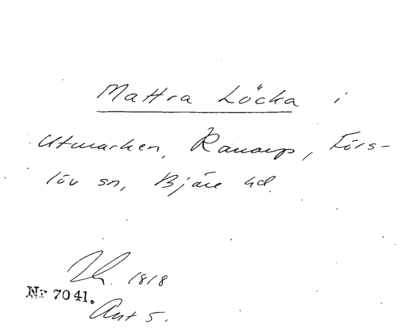 Mattra Löcka i
Utmarken, Ranarp, Förs-
löv sn, Bjäre hd.
1818
Nr 7041.
Ant 5.